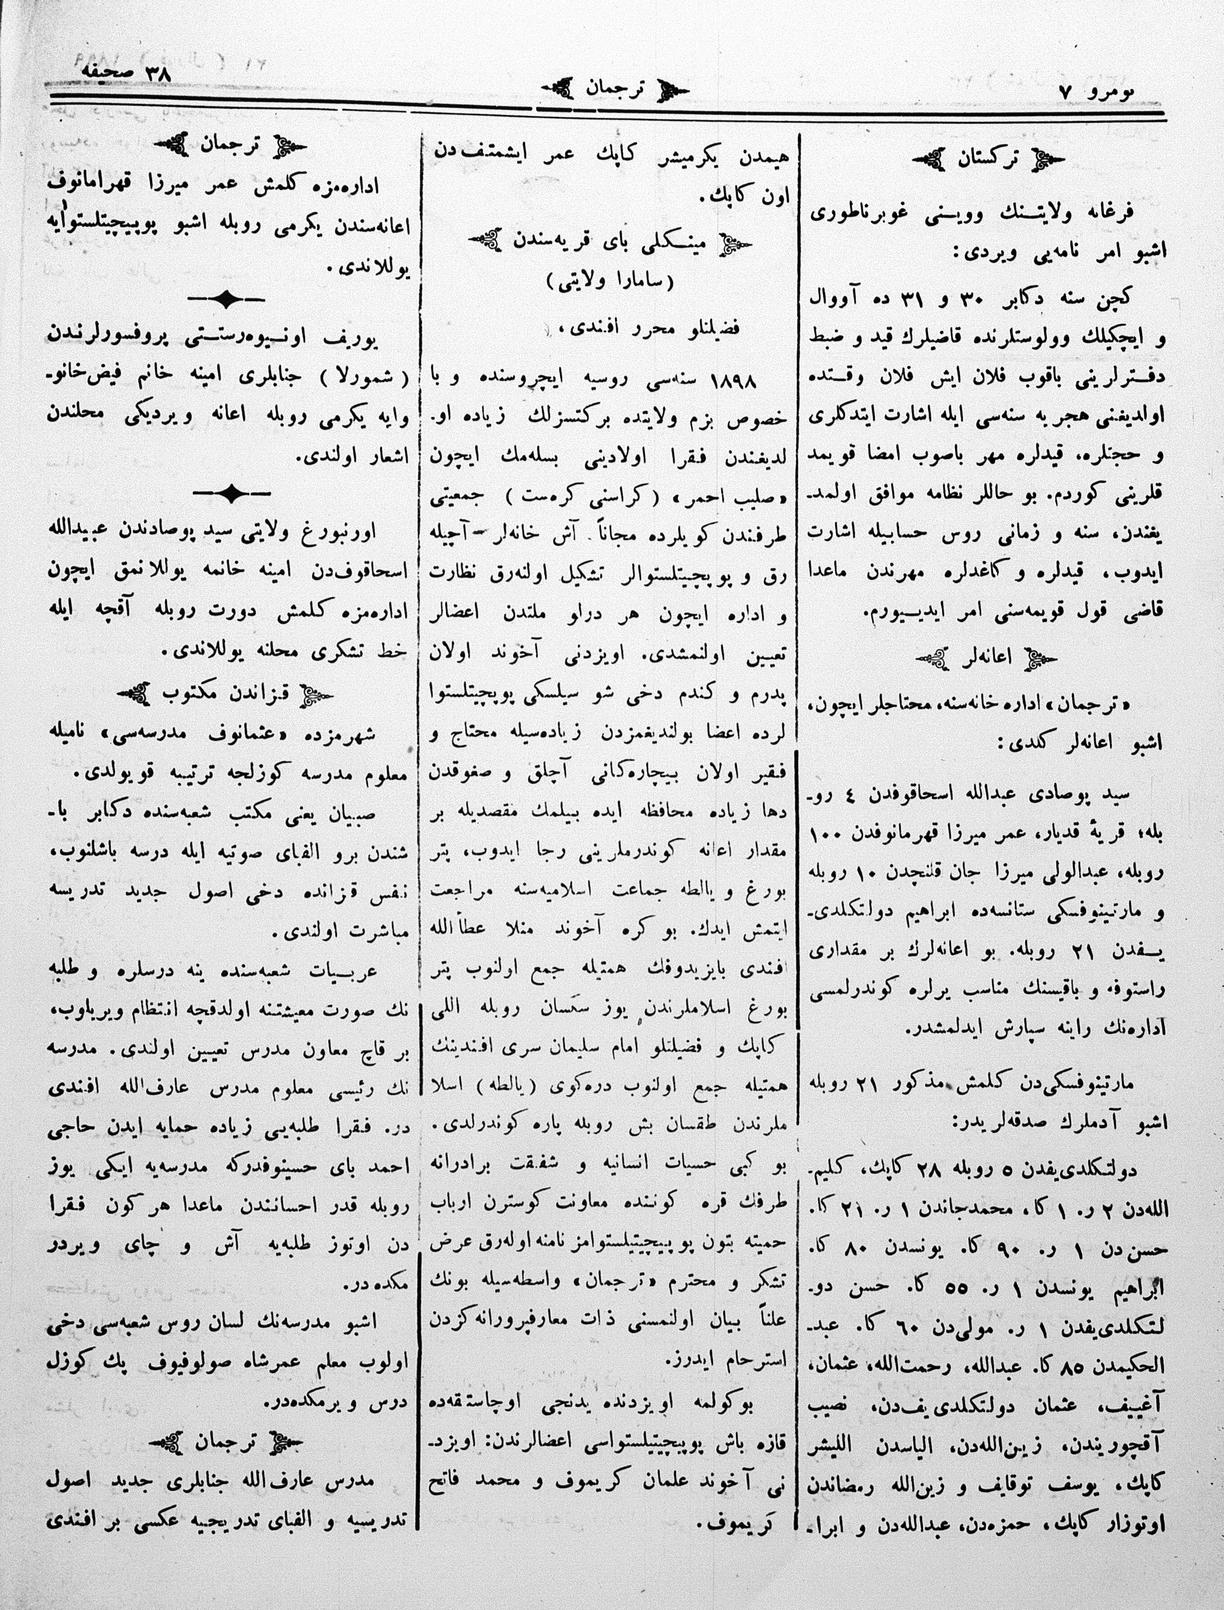 نومرو ٧
ترجمان
٣٨ صحيفه
تركستان
فرغانه ولايتنك وويننى غوبرناطورى
اشبو امر نامه‌يى ويردى:
كچن سنه دكابر ٣٠ و ٣١ ده آووال
و ايچكيلك وولوستلرنده قاضيلرك قيد و ضبط
دفترلرينى باقوب فلان ايش فلان وقتده
اولديغنى هجريه سنه‌سى ايله اشارت ايتدكلرى
و حجتلره، قيدلره مهر باصوب امضا قويمد
قلرينى كوردم. بو حاللر نظامه موافق اولمد-
يغندن، سنه و زمانى روس حسابيله اشارت
ايدوب، قيدلره و كاغدلره مهرندن ماعدا
قاضى قول قويمه‌سنى امر ايدييورم.
اعانه‌لر
«ترجمان» اداره خانه‌سنه، محتاجلر ايچون،
اشبو اعانه‌لر كلدى:
سيد پوصادى عبدالله اسحاقوفدن ٤ رو-
بله؛ قريهٔ قديار، عمر ميرزا قهرمانوفدن ١٠٠
روبله، عبدالولى ميرزا جان قلنچدن ١٠ روبله
و مارتينوفسكى ستانسه‌ده ابراهيم دولتكلدى-
يفدن ٢١ روبله. بو اعانه‌لرك بر مقدارى
راستوفه و باقيسنك مناسب يرلره كوندرلمسى
اداره‌نك راينه سپارش ايدلمشدر.
مارتينوفسكى‌دن كلمش مذكور ٢١ روبله
اشبو آدملرك صدقه‌لريدر:
دولتكلدى‌يفدن ٥ روبله ٢٨ كاپك، كليم-
الله‌دن ٢ ر. ١ كا، محمدجاندن ١ ر. ٢١ كا.
حسن دن ١ ر. ٩٠ كا. يونسدن ٨٠ كا.
ابراهيم يونسدن ١ ر. ٥٥ كا. حسن دو-
لتكلدى‌يفدن ١ ر. مولى‌دن ٦٠ كا. عبد-
الحكيمدن ٨٥ كا. عبدالله، رحمت‌الله، عثمان،
آغييف، عثمان دولتكلدى‌يف‌دن، نصيب
آقچوريندن، زين‌الله‌دن، الياسدن ا‌لليشر
كاپك، يوسف توقايف و زين‌الله رمضاندن
اوتوزار كاپك، حمزه‌دن، عبدالله‌دن و ابرا-
هيمدن يكرميشر كاپك عمر ايشمتف‌دن
اون كاپك.
مينكلى باى قريه‌سندن
(سامارا ولايتى)
فضيلتلو محرر افندى،
١٨٩٨ سنه‌سى روسيه ايچروسنده و با
خصوص بزم ولايتده بركتسزلك زياده او.
لديغندن فقرا اولادينى بسله‌مك ايچون
«صليب احمر» (كراسنى كره‌ست) جمعيتى
طرفندن كويلرده مجاناً آش خانه‌لر آچيله
رق و پوپچيتلستوالر تشكيل اولنه‌رق نظارت
و اداره ايچون هر درلو ملتدن اعضالر
تعيين اولنمشدى. اويزدنى آخوند اولان
پدرم و كندم دخى شو سيلسكى پوپچيتلستوا
لرده اعضا بولنديغمزدن زياده‌سيله محتاج و
فقير اولان بيچاره‌كانى آچلق و صغوقدن
دها زياده محافظه ايده بيلمك مقصديله بر
مقدار اعانه كوندرملرينى رجا ايدوب، پتر
بورغ و يالطه جماعت اسلاميه‌سنه مراجعت
ايتمش ايدك. بو كره آخوند منلا عطأالله
افندى بايزيدوفك همتيله جمع اولنوب پتر
بورغ اسلاملرندن يوز سكسان روبله اللى
كاپك و فضيلتلو امام سليمان سرى افندينك
همتيله جمع اولنوب دره‌كوى (يالطه) اسلا
ملرندن طقسان بش روبله پاره كوندرلدى.
بو كبى حسيات انسانيه و شفقت برادرانه
طرفك قره كوننده معاونت كوسترن ارباب
حميته بتون پوپيچيتيلستوامز نامنه اوله‌رق عرض
تشكر و محترم «ترجمان» واسطه‌سيله بونك
علناً بيان اولنمسنى ذات معارفپرورانه‌كزدن
استرحام ايدرز.
بوكولمه اويزدنده يدنجى اوچاستقه‌ده
قازه باش پوپيچيتيلستواسى اعضالرندن: اويزد-
نى آخوند علمان كريموف و محمد فاتح
كريموف.
ترجمان
اداره‌مزه كلمش عمر ميرزا قهرامانوف
اعانه‌سندن يكرمى روبله اشبو پوپيچيتلستوايه
يوللاندى.
يوريف اونيوه‌رستتى پروفسورلرندن
(شمورلا) جنابلرى امينه خانم فيض‌خانو-
وايه يكرمى روبله اعانه ويرديكى محلندن
اشعار اولندى.
اورنبورغ ولايتى سيد پوصادندن عبيدالله
اسحاقوف‌دن امينه خانمه يوللانمق ايچون
اداره‌مزه كلمش دورت روبله آقچه ايله
خط تشكرى محلنه يوللاندى.
قزاندن مكتوب
شهرمزده «عثمانوف مدرسه‌سى» ناميله
معلوم مدرسه كوزلجه ترتيبه قويولدى.
صبيان يعنى مكتب شعبه‌سنده دكابر با-
شندن برو الفباى صوتيه ايله درسه باشلنوب،
نفس قزانده دخى اصول جديد تدريسه
مباشرت اولندى.
عربيات شعبه‌سنده ينه درسلره و طلبه
نك صورت معيشتنه اولدقچه انتظام ويرياوب،
بر قاچ معاون مدرس تعيين اولندى. مدرسه
نك رئيسى معلوم مدرس عارف‌الله افندى
در. فقرا طلبه‌يى زياده حمايه ايدن حاجى
احمد باى حسينوفدركه مدرسه‌يه ايكى يوز
روبله قدر احسانندن ماعدا هر كون فقرا
دن اوتوز طلبه‌يه آش و چاى ويردر
مكده در.
اشبو مدرسه‌نك لسان روس شعبه‌سى دخى
اولوب معلم عمرشاه صولوفيوف پك كوزل
درس ويرمكده‌در.
ترجمان
مدرس عارف‌الله جنابلرى جديد اصول
تدريسيه و الفباى تدريجيه عكسى بر افندى